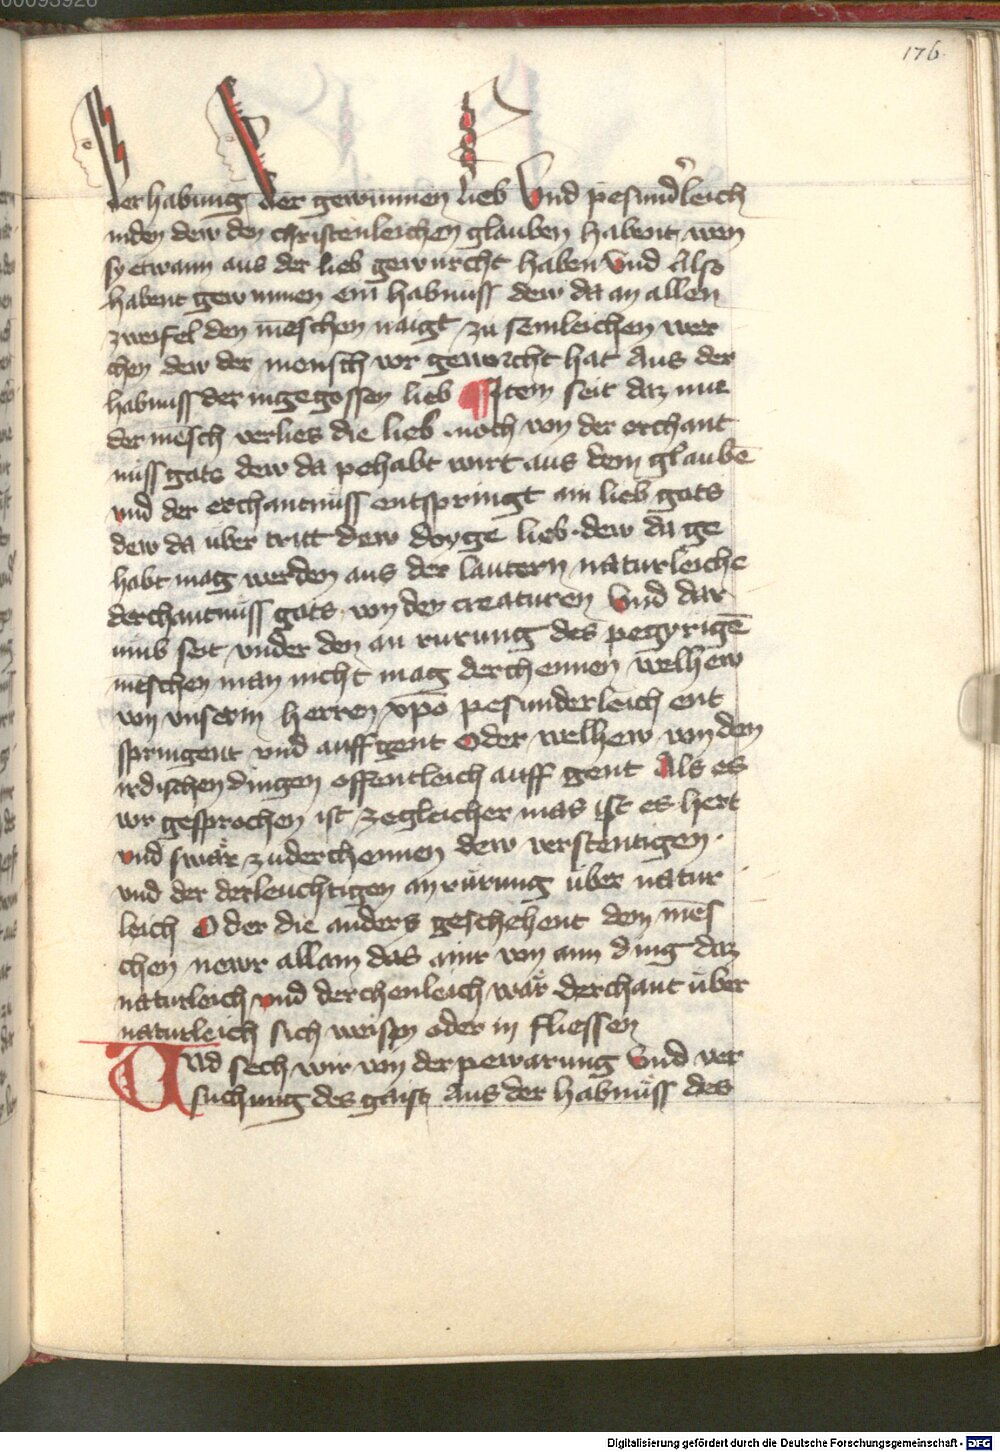 00093926
176.
der habung der gewunnen lieb Vnd pesunderleich
in den dew den christenleichen glauben habent wen
sy etwann aus der lieb gewurcht haben Vnd Also
habent gewunnen ein habnuss dew da an allen
zweifel den menschen naigt zu semleichen wer
chen dew der mensch vor geworcht hat Aus der
habnuss der ingegossen lieb ¶ Item seit daz nur
der mēsch verlies die lieb noch von der erchant
nuss gots dew da pehabt wirt aus dem glaubē
vnd der erchantnuss entspringt ain lieb gots
dew da über tritt dew doyge lieb dew da ge
habt mag werden aus der lautern naturleiche
derchantnuss gots von den creaturen Vnd dar
umb seit vnder den an rurung des pegyrigē
mēschen man nicht mag derchennen welhew
von vnserm herren xpō pesunderleich ent
springent vnd auff gent Oder welhew von den
irdischen dingen offentleich auff gent Als es
vor gesprochen ist zegleicher mas ist es hert
vnd swär zuderchennen dew verstentigen
vnd der derleuchtigen anrürung über natur
leich Oder die anders geschehent dem mēs
chen newr allain das ainr von aim ding daz
naturleich vnd derchenleich wär derchant über
naturleich sich weisen oder in fliessen
Und sech wir von der pewarung Vnd ver
suchung des gaists Aus der habnüss des
Digitalisierung gefördert durch die Deutsche Forschungsgemeinschaft - DFG